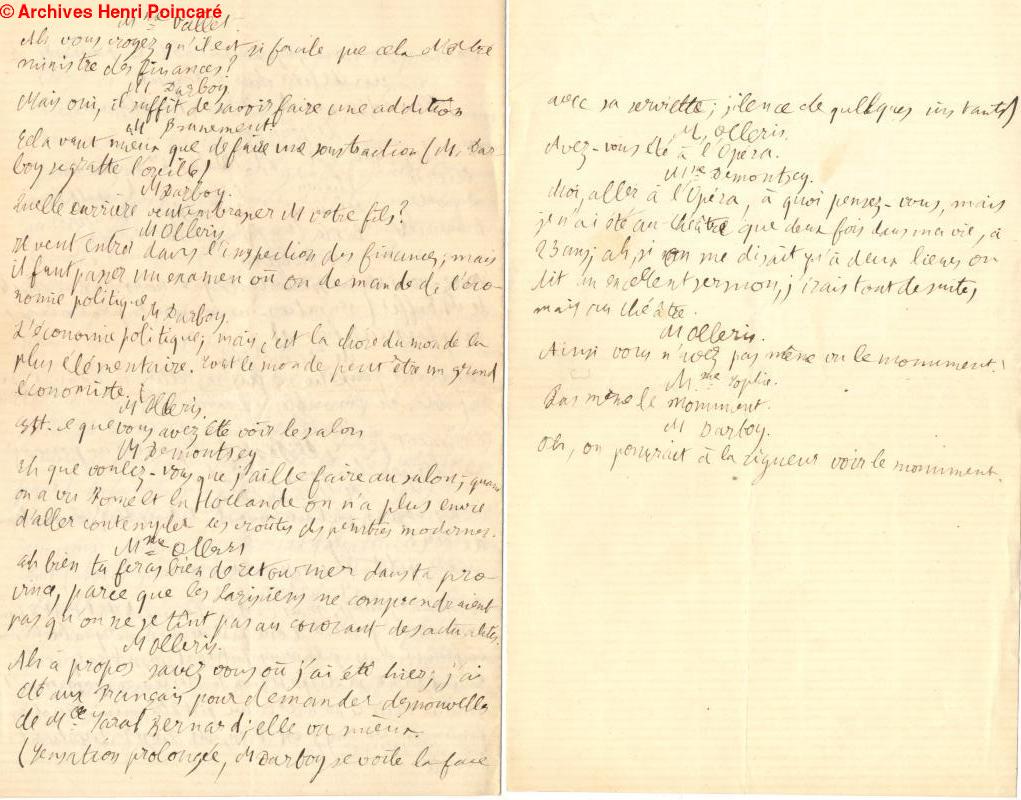 © Archives Henri Poincaré
Mme Vallet.
Ah vous croyez qu'il est si facile que cela d'être
ministre des finances?
M Darboy
Mais oui, il suffit de savoir faire une addition
M Brunement.
Cela vaut mieux que de faire une soustraction (M. Dar-
boy se gratte l'oreille)
M Darboy.
Quelle carrière veut embrasser M votre fils?
M Olleris
Il veut entrer dans l'inspection des finances; mais
il faut passer un examen où on demande de l'éco-
nomie politique
M Darboy.
L'économie politique; mais c'est la chose du monde la
plus élémentaire. Tout le monde peut être un grand
économiste.
M Olleris.
Est-ce que vous avez été voir le salon
M Demontsey
Eh que voulez-vous que j'aille faire au salon; quand
on a vu Rome et la Hollande on n'a plus envie
d'aller contempler les croûtes des peintres modernes.
Mme Olleris
Ah bien tu feras bien de retourner dans ta pro-
vince, parce que les Parisiens ne comprendraient
pas qu'on ne se tînt pas au courant des actualités.
M Olleris.
Ah à propos savez vous où j'ai été hier; j'ai
été aux Français pour demander des nouvelles
de Mlle Sarah Bernard; elle va mieux.
(Sensation prolongée, M Darboy se voile la face
avec sa serviette; silence de quelques instants)
M. Olleris.
Avez-vous été à l'Opéra.
Mme Demontsey.
Moi, aller à l'Opéra, à quoi pensez-vous, mais
je n'ai été au théâtre que deux fois dans ma vie, à
23 ans; ah, si on me disait qu'à deux lieues on
dit un excellent sermon, j'irais tout de suite,
mais au théâtre.
M Olleris.
Ainsi vous n'avez pas même vu le monument.
Mme Sophie.
Pas même le monument.
M Darboy.
Oh, on pourrait à la rigueur voir le monument.